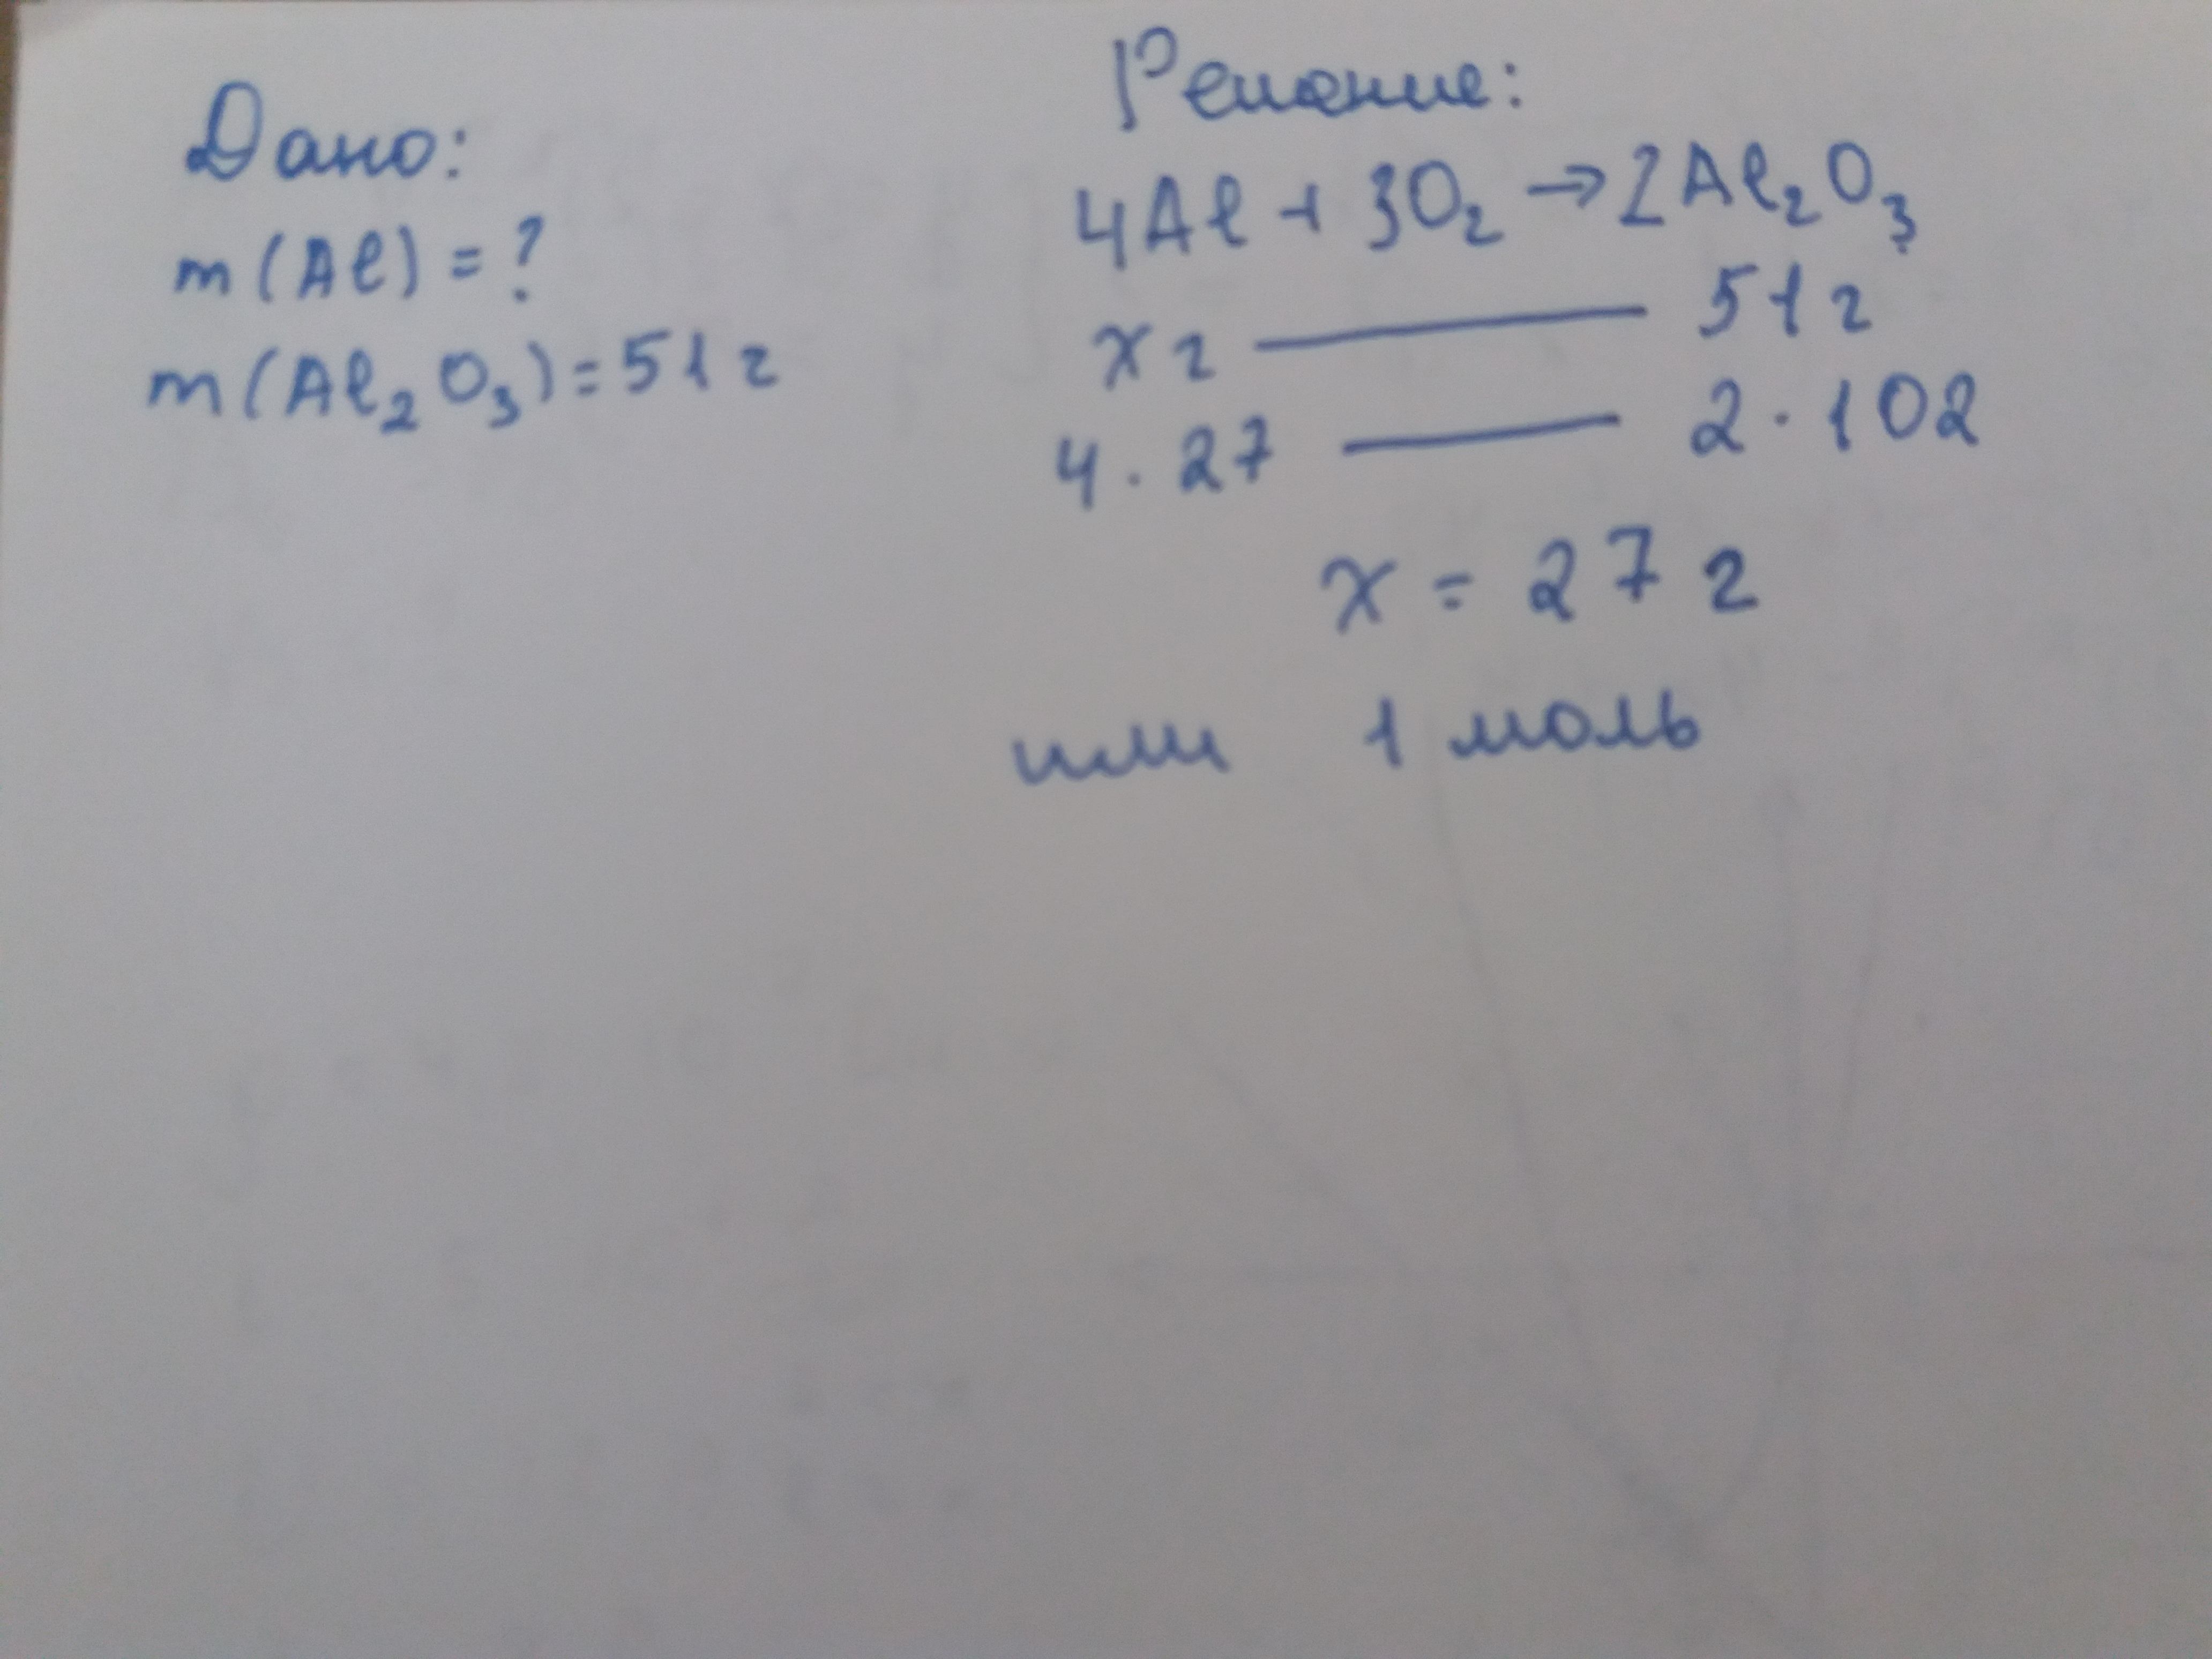 Дано:
m(Al) = ?
m(Al₂O₃) = 51 г
Решение:
4Al + 3O₂ → 2Al₂O₃
x г — 51 г
4 · 27 — 2 · 102
x = 27 г
или 1 моль